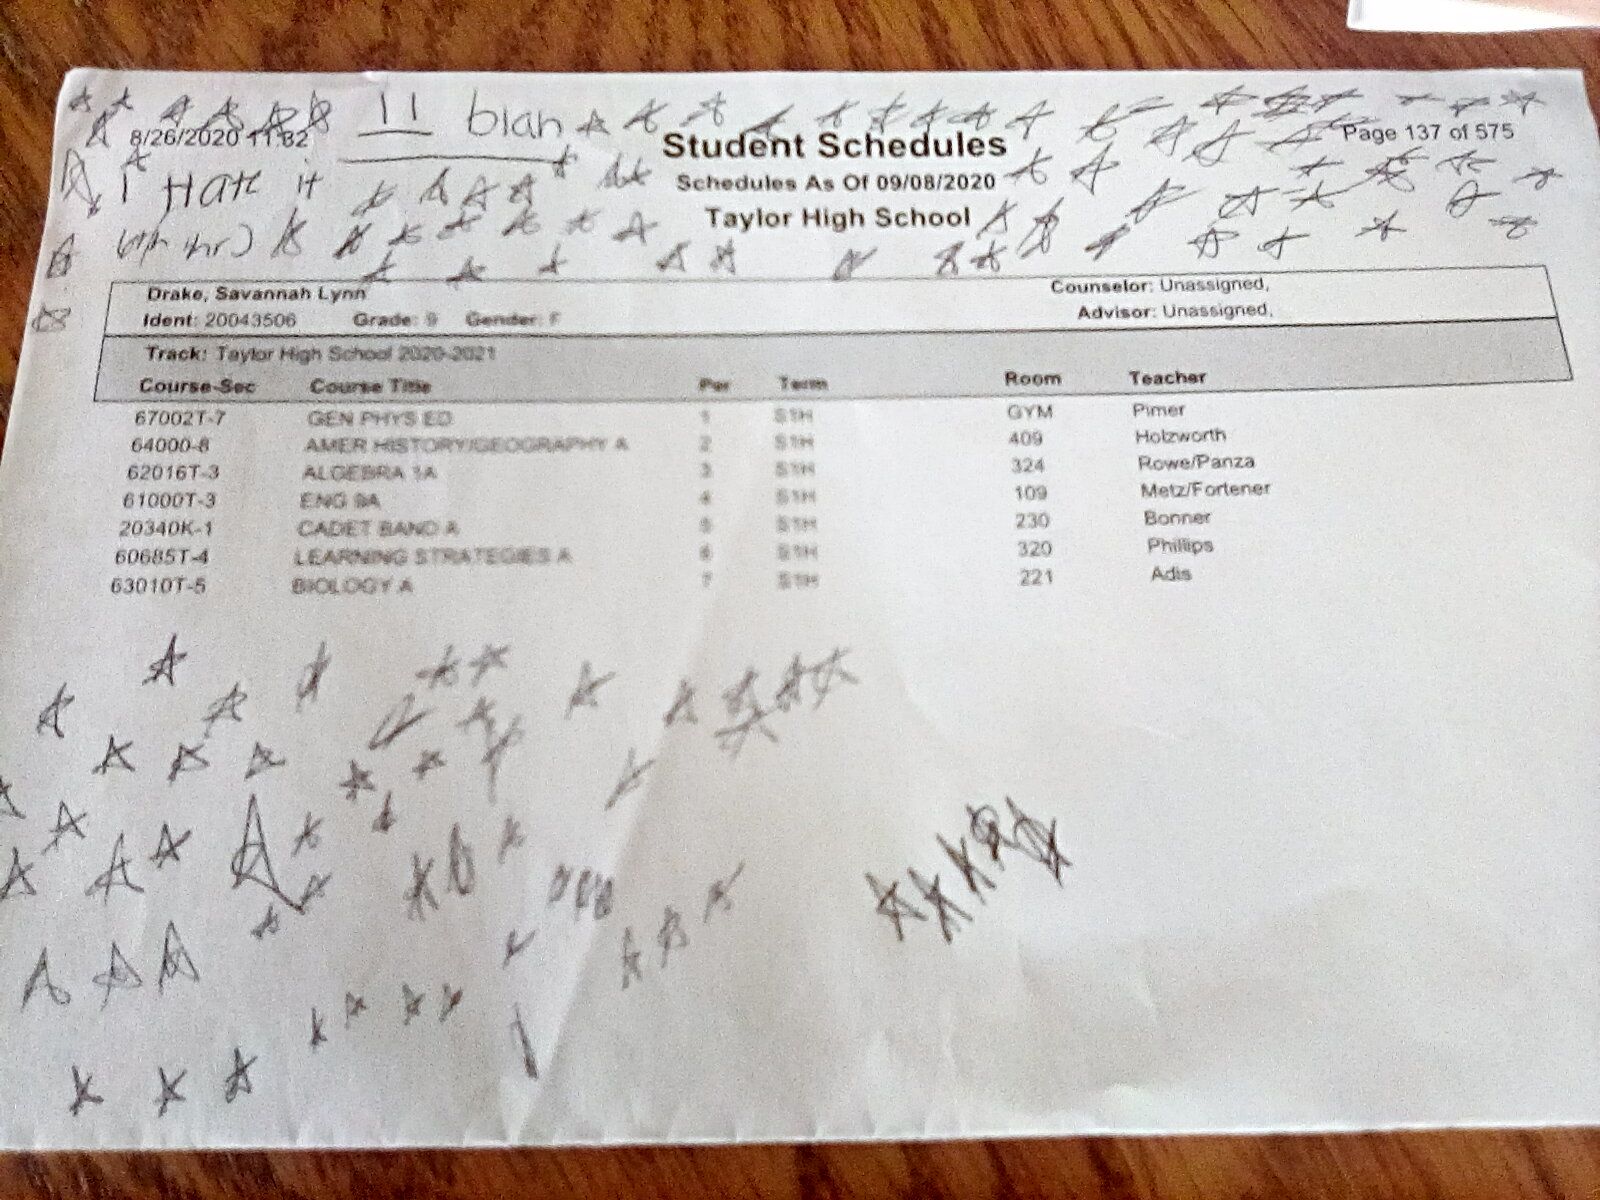 11 blah
8/26/2020 11:32
Student Schedules
Page 137 of 575
I HatE it
Schedules As Of 09/08/2020
Taylor High School
Drake, Savannah Lynn
Counselor: Unassigned,
Ident: 20043506 Grade: 9 Gender: F
Advisor: Unassigned,
Track: Taylor High School 2020-2021
Course-Sec Course Title Per Term Room Teacher
67002T-7 GEN PHYS ED 1 S1H GYM Pimer
64000-8 AMER HISTORY/GEOGRAPHY A 2 S1H 409 Holzworth
62016T-3 ALGEBRA 1A 3 S1H 324 Rowe/Panza
61000T-3 ENG 9A 4 S1H 109 Metz/Fortener
20340K-1 CADET BAND A 5 S1H 230 Bonner
60685T-4 LEARNING STRATEGIES A 6 S1H 320 Phillips
63010T-5 BIOLOGY A 7 S1H 221 Adis